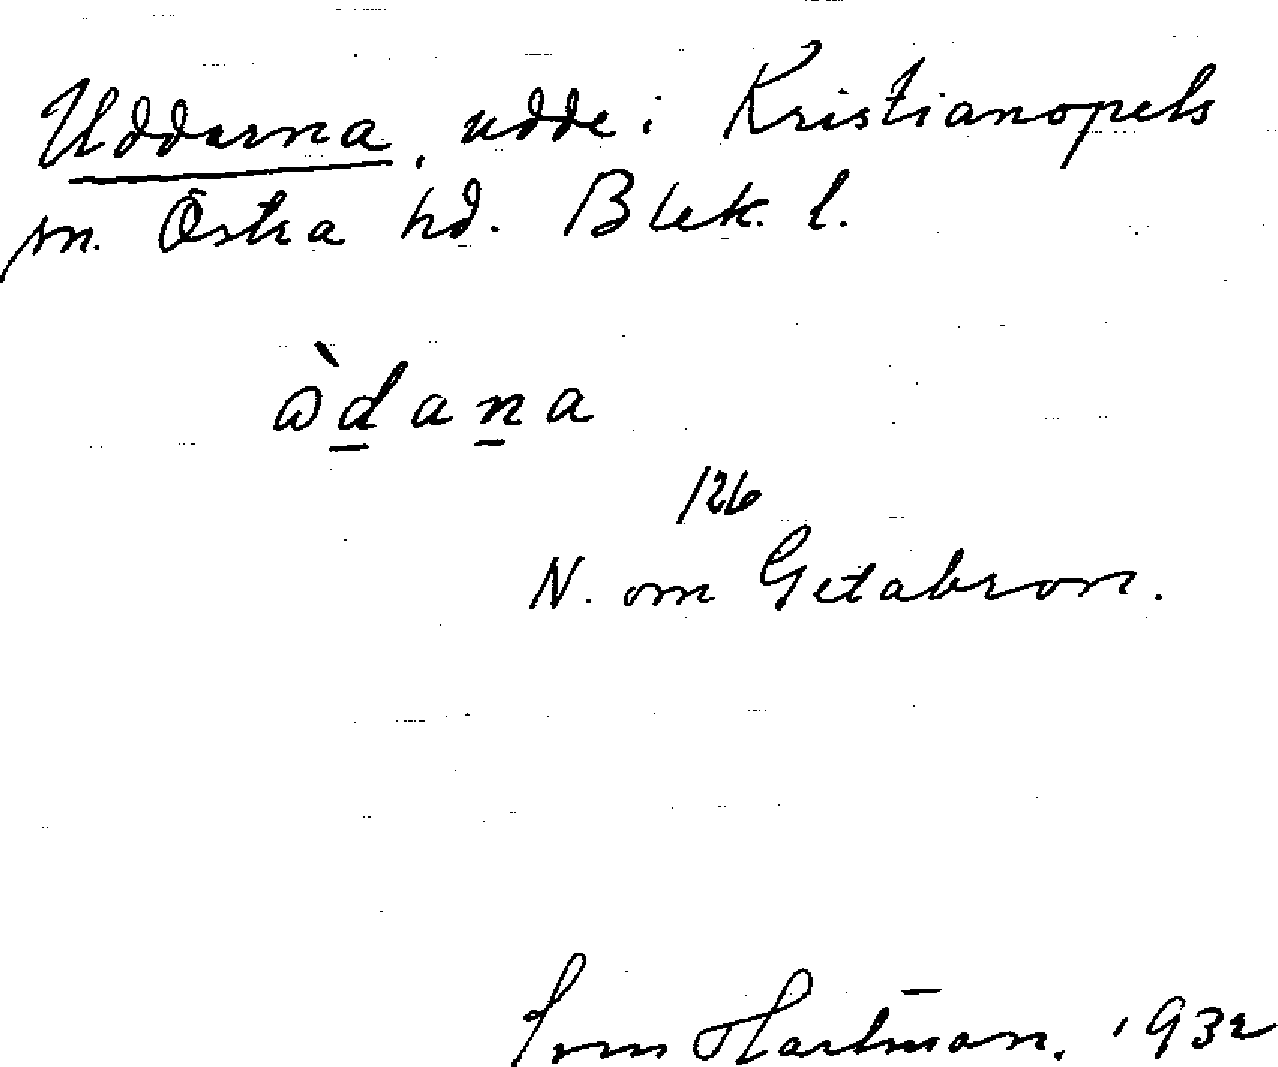 Uddarna, udde i Kristianopels
sn. Östra hd. Blek. l.
ὼdana
126
N. om Getabron.
Sven Hartman. 1932